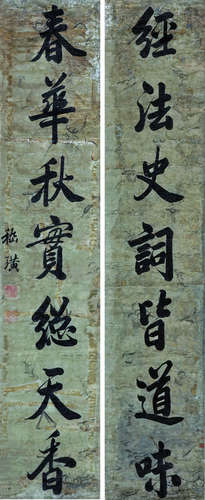 經法史詞皆道味
春華秋實總天香
嵇璜